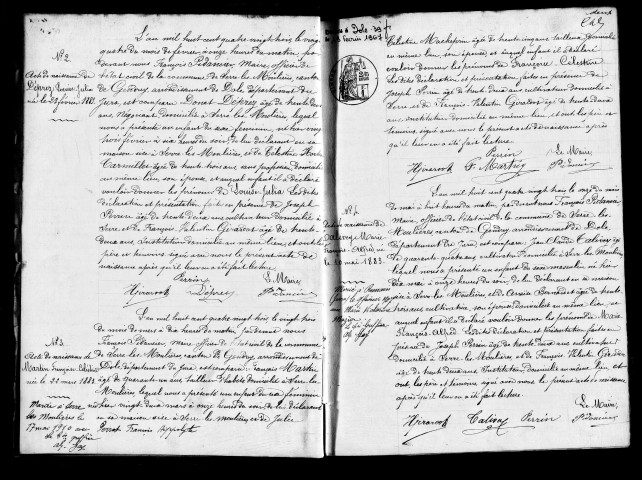 N° 2
Acte de naissance de
né le 22 février 1883.
L'an mil huit cent quatre vingt trois le vingt
quatre du mois de février à onze heures du matin par
devant nous François Pidancier, Maire, officier de
l'état civil de la commune de Serre les Moulières, canton
de Gendrey, arrondissement de Dole, département du
Jura, est comparu Donat Déprez âgé de trente
ans, Négociant domicilié à Serre les Moulières lequel
nous a présenté un enfant du sexe féminin, né
février à heures du soir de lui déclarant en sa
maison sise à Serre les Moulières et de Célestine
âgée de trente trois ans sans profession domiciliée
au même lieu, son épouse, et auquel enfant il a déclaré
vouloir donner les prénoms de Julia. Les dites
déclaration et présentation faites en présence de Joseph
Perrin âgé de trente deux ans cultivateur domicilié à
Serre et de François Valentin Gérardot âgé de trente
deux ans, Instituteur domicilié au même lieu, et ont le
père et témoins signé avec nous le présent acte de
naissance après qu'il leur en a été fait lecture.
Perrin Le Maire
Pidancier
N° 3
Acte de naissance de
Martin Françoise Célestine
né le 22 mars 1883
L'an mil huit cent quatre vingt trois le vingt trois
du mois de mars à dix heures du matin par devant nous
François Pidancier, maire, officier de l'état civil de la commune
de Serre les Moulières, canton de Gendrey arrondissement de
Dole, département du Jura, est comparu François Martin
âgé de quarante un ans tailleur d'habits domicilié à Serre les
Moulières lequel nous a présenté un enfant du sexe féminin
né hier vingt deux mars à onze heures du soir de lui déclarant
en sa maison sise à Serre les moulières et de Julie
les Moulières le
17 mai 1910 avec
Perrot Francis Hippolyte
Célestine âgée de trente cinq ans tailleuse domiciliée
au même lieu, son épouse, et auquel enfant il a déclaré
vouloir donner les prénoms de Françoise, Célestine
Les dites déclaration et présentation faites en présence de
Joseph Perrin âgé de trente deux ans cultivateur domicilié à
Serre et de François Valentin Gérardot âgé de trente deux
ans, Instituteur domicilié au même lieu, et ont les père et
témoins, signé avec nous le présent acte de naissance après
qu'il leur en a été fait lecture
Perrin Le Maire
F. Martin Pidancier
N° 4
Acte de naissance de
Marie
François Alfred
le 10 mai 1883.
L'an mil huit cent quatre vingt trois le onze du mois
de mai à huit heures du matin, par devant nous François Pidancier
Maire, officier de l'état civil de la commune de Serre les
Moulières canton de Gendrey, arrondissement de Dole,
département du Jura est comparu Jean Claude
âgé de quarante quatre ans cultivateur domicilié à Serre les Moulières
lequel nous a présenté un enfant du sexe masculin né hier
dix mai à onze heures du soir, de lui déclarant en sa maison
sise à Serre les Moulières et de âgée de trente
trois ans cultivatrice, son épouse, domiciliée au même lieu, et
auquel enfant il a déclaré vouloir donner les prénoms de Marie
François Alfred. Les dites déclaration et présentation faites en
présence de Joseph Perrin âgé de trente deux ans cultivateur
domicilié à Serre les Moulières, et de François Valentin Gérardot
âgé de trente deux ans, Instituteur domicilié au même lieu, et
ont, les père et témoins signé avec nous le présent acte de naissance
après qu'il leur en a été fait lecture
Le Maire
Perrin Pidancier